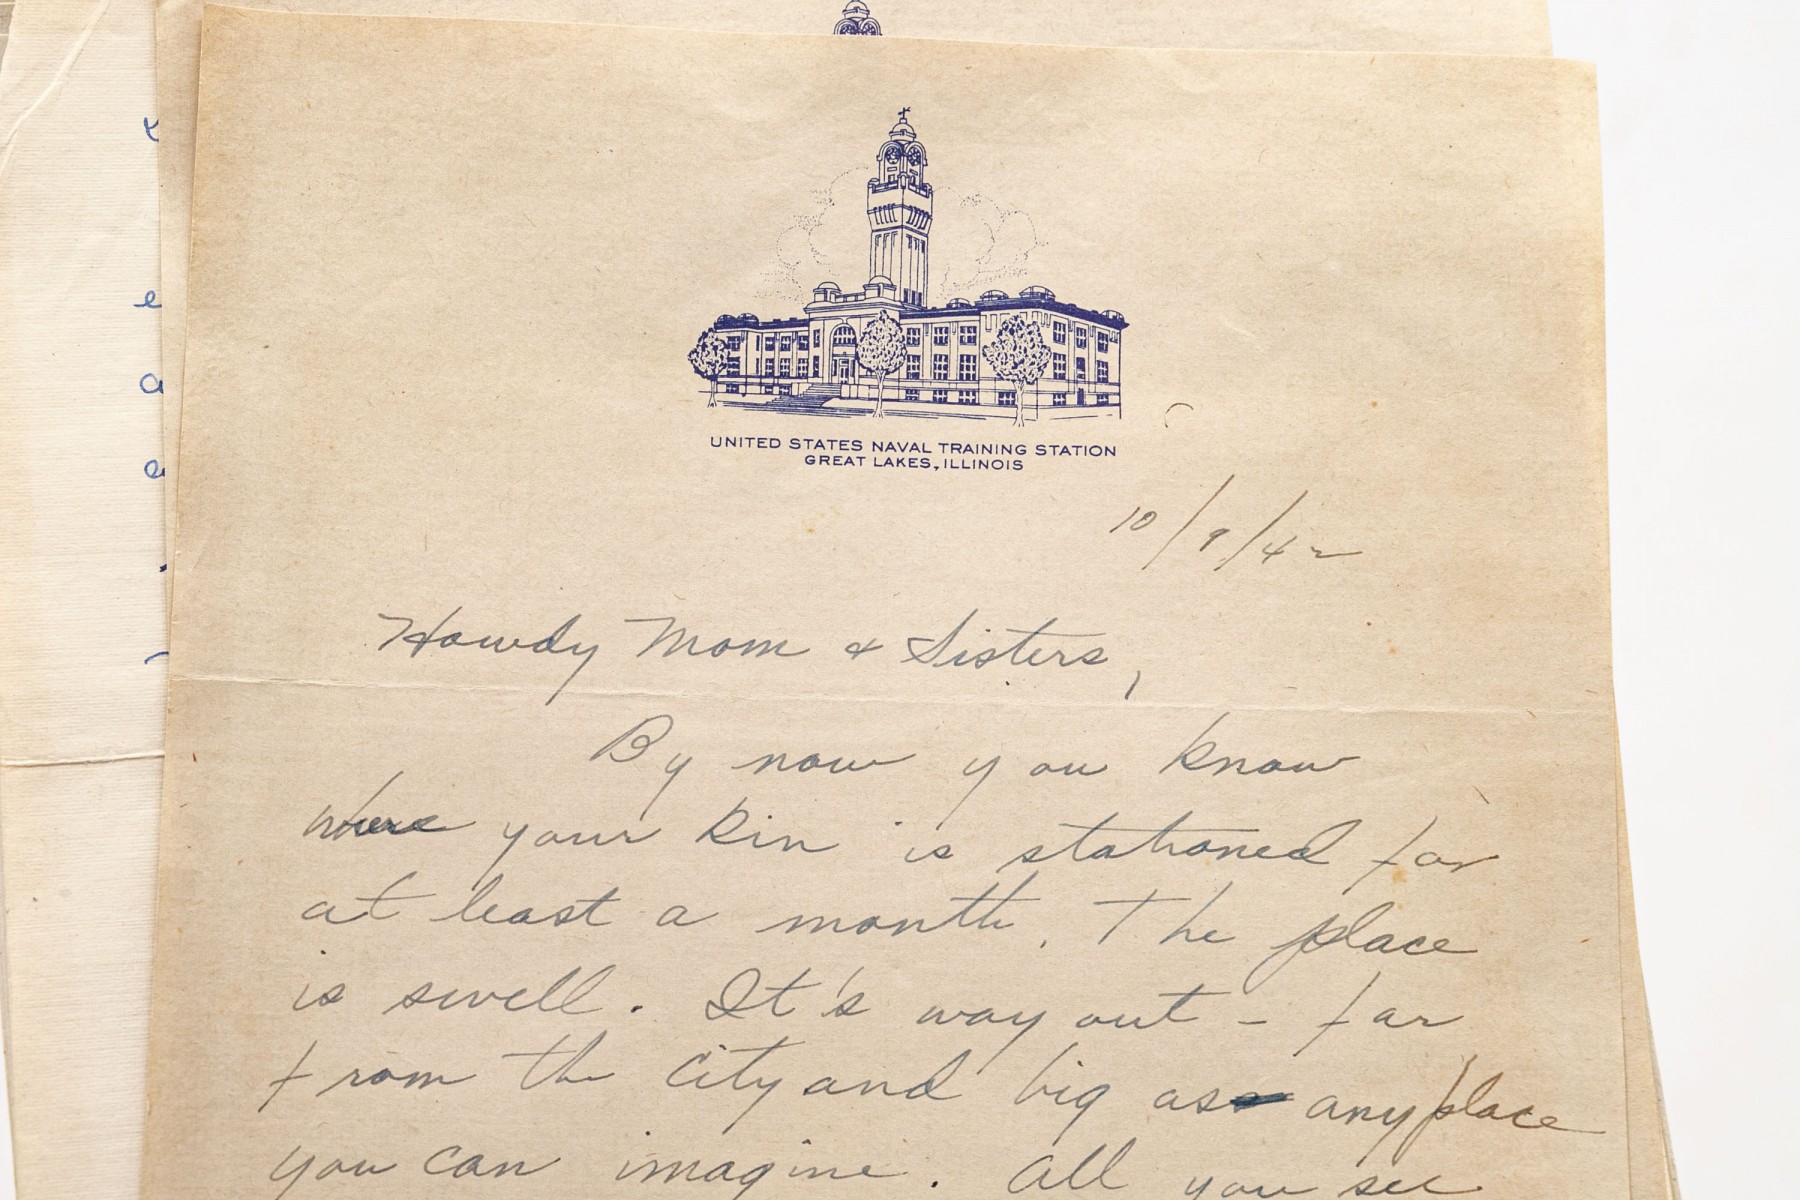 UNITED STATES NAVAL TRAINING STATION
GREAT LAKES, ILLINOIS
10/9/42
Howdy Mom & Sisters,
By now you know
where your kin is stationed for
at least a month. The place
is swell. It's way out - far
from the city and big as any place
you can imagine. All you see